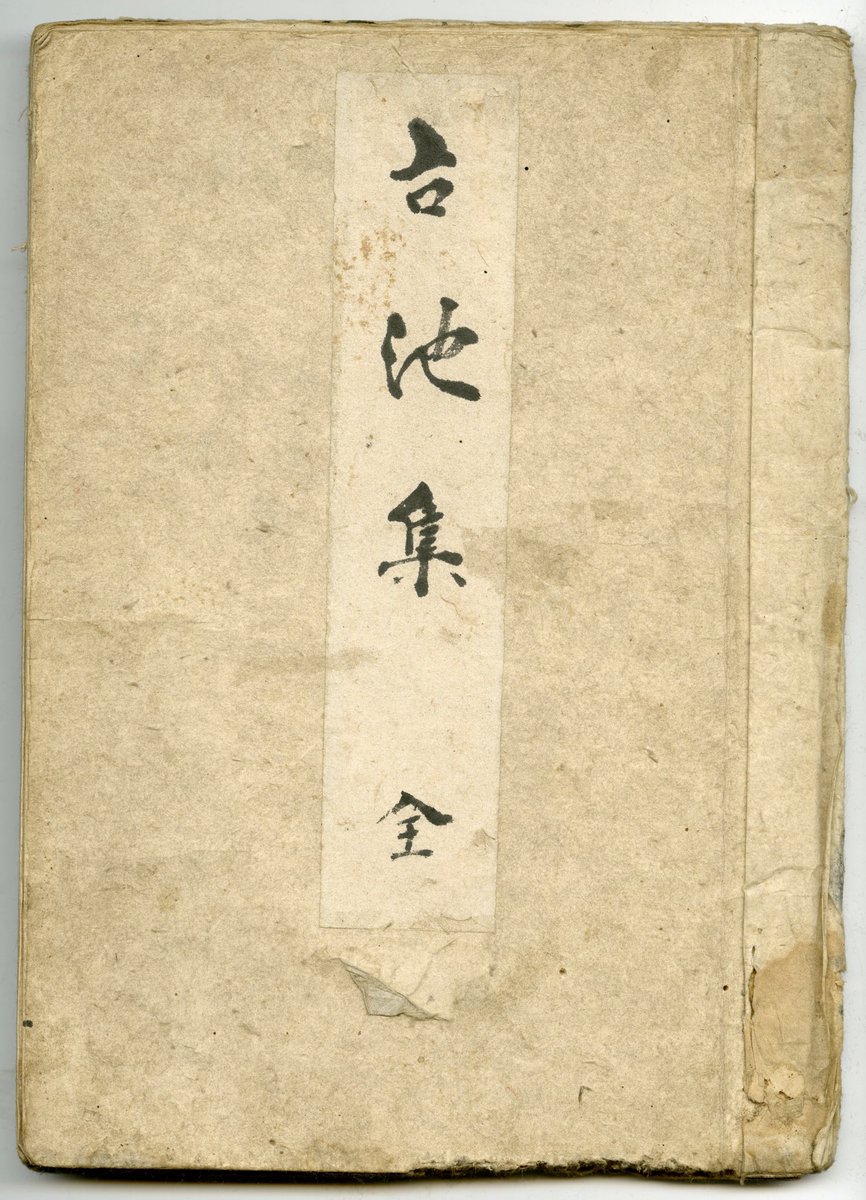 古池集 全